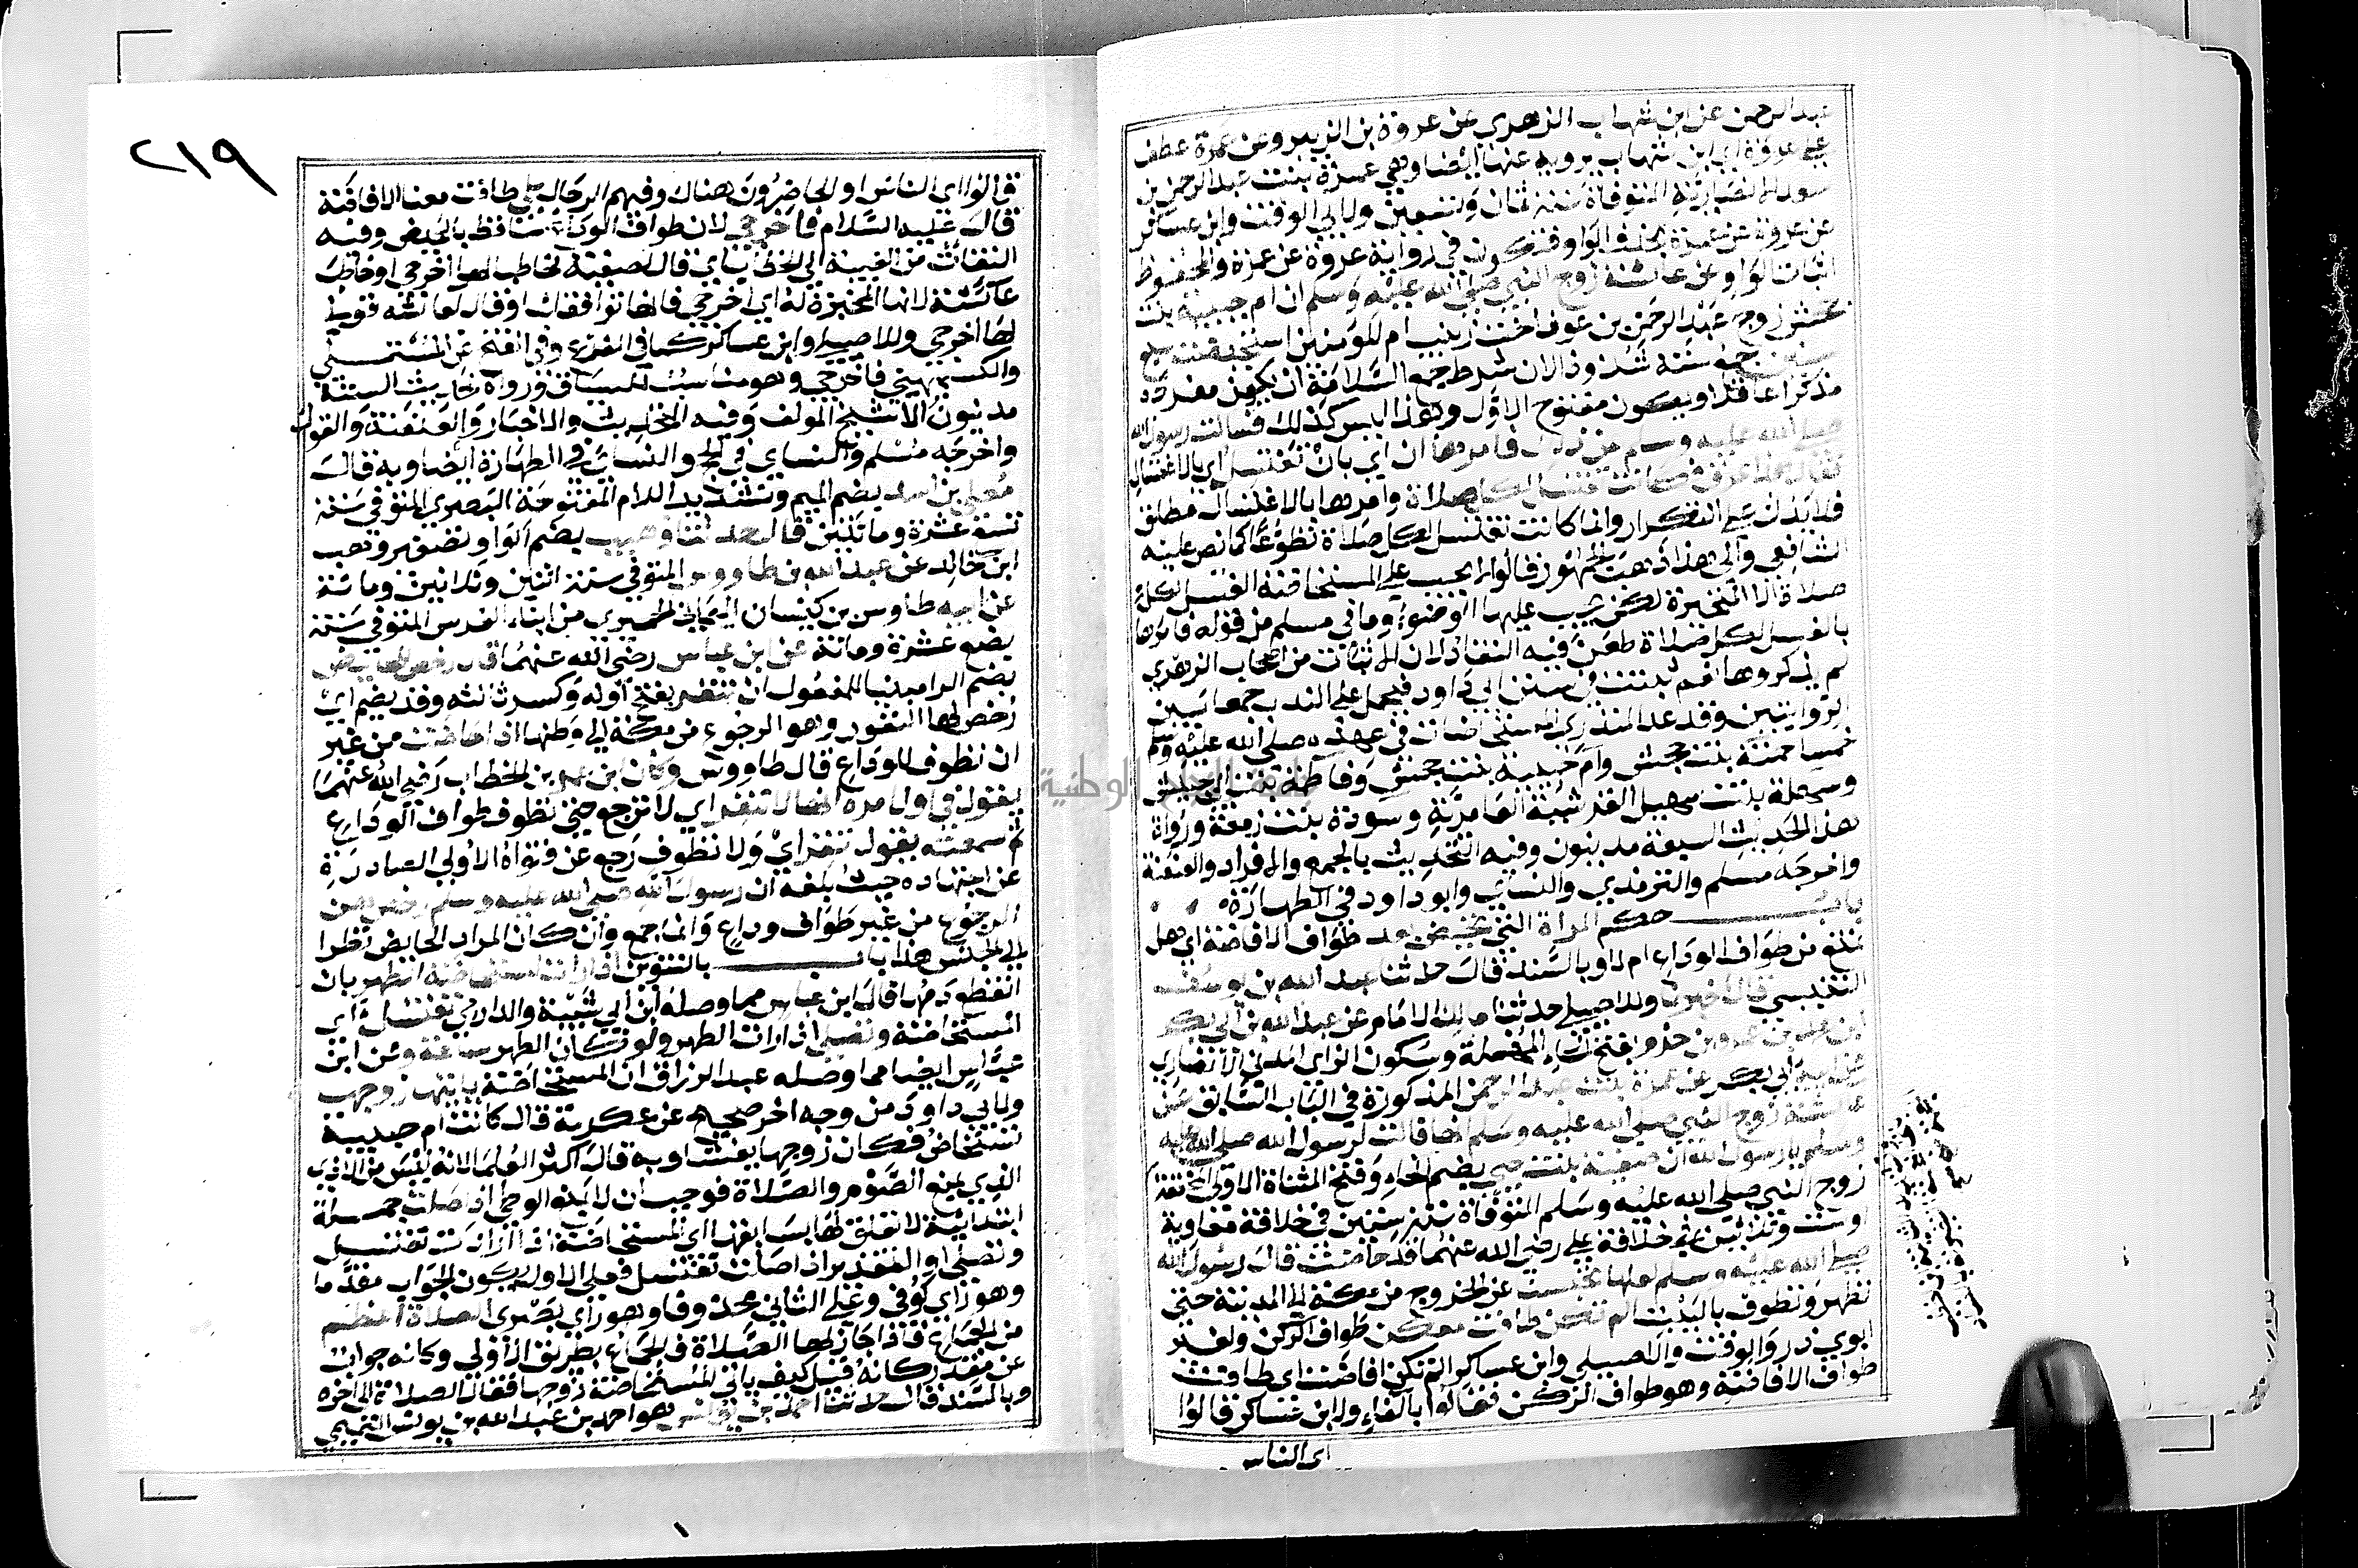 عبد الرحمن عن ابن شهاب الزهري عن عروة بن الزبير وعن عمرة عطف
على عروة اي ابن شهاب يرويه عنها ايضا وهي عمرة بنت عبد الرحمن بن
سعد الانصارية المتوفاة سنة ثمان وتسعين ولابي الوقت وابن عساكر
عن عروة عن عمرة بحذف الواو فتكون في رواية عروة عن عمرة والمحفوظ
اثبات الواو عن عائشة زوج النبي صلى الله عليه وسلم ان ام حبيبة بنت
جحش زوج عبد الرحمن بن عوف اخت زينب ام المومنين استحيضت سبع
سنين جمع سنة شذوذا لان شرط جمع السلامة ان يكون مفرده
مذكرا عاقلا ويكون مفتوح الاول وهذا ليس كذلك فسالت رسول الله
صلى الله عليه وسلم عن ذلك فامرها ان اي بان تغتسل اي بالاغتسال
فقال هذا عرق فكانت تغتسل لكل صلاة وامرها بالاغتسال مطلق
فلا يدل على التكرار وانما كانت تغتسل لكل صلاة تطوعا كما نص عليه
الشافعي والى هذا ذهب الجمهور قالوا لا يجب على المستحاضة الغسل لكل
صلاة الا المتحيرة لكن يجب عليها الوضوء وما في مسلم من قوله فامرها
بالغسل لكل صلاة طعن فيه النقاد لان الاثبات من اصحاب الزهري
لم يذكروها نعم ثبتت في سنن ابي داود فيحمل على الندب جمعا بين
الروايتين وقد عد المنذري المستحاضات في عهده صلى الله عليه وسلم
خمسا حمنة بنت جحش وام حبيبة بنت جحش وفاطمة بنت ابي حبيش
وسهلة بنت سهيل القرشية العامرية وسودة بنت زمعة ورواة
هذا الحديث السبعة مدنيون وفيه التحديث بالجمع والافراد والعنعنة
واخرجه مسلم والترمذي والنسائي وابو داود في الطهارة
باب حكم المراة التي تحيض بعد طواف الافاضة اي هل
تمنع من طواف الوداع ام لا وبالسند قال حدثنا عبد الله بن يوسف
التنيسي قال اخبرنا وللاصيلي حدثنا مالك الامام عن عبد الله بن ابي بكر
ابن محمد بن عمرو بن حزم بفتح الحاء المهملة وسكون الزاي المدني الانصاري
عن ابيه ابي بكر عن عمرة بنت عبد الرحمن المذكورة في الباب السابق عن
عائشة زوج النبي صلى الله عليه وسلم انها قالت لرسول الله صلى الله عليه
وسلم يا رسول الله ان صفية بنت حيي بضم الحاء وفتح المثناة الاولى المخففة
زوج النبي صلى الله عليه وسلم المتوفاة سنة ستين في خلافة معاوية
او ست وثلاثين في خلافة علي رضي الله عنهما قد حاضت قال رسول الله
صلى الله عليه وسلم لعلها تحبسنا عن الخروج من مكة الى المدينة حتى
تطهر وتطوف بالبيت الم تكن طافت معكن طواف الركن ولغير
ابوي ذر والوقت والاصيلي وابن عساكر الم تكن افاضت اي طافت
طواف الافاضة وهو طواف الركن فقالوا بالفاء ولابن عساكر قالوا
اي الناس
٢١٩
قالوا اي الناس او الحاضرون هناك وفيهم الرجال بلى طافت معنا الافاضة
قال عليه السلام فاخرجي لان طواف الوداع ساقط بالحيض وفيه
التفات من الغيبة الى الخطاب اي قال لصفية مخاطبا لها اخرجي او خاطب
عائشة لانها المخبرة له اي اخرجي فانها توافقك او قال لعائشة قولي
لها اخرجي وللاصيلي وابن عساكر كما في الفرع وفي الفتح عن المستملي
والكشميهني فاخرجي وهو مناسب للسياق ورواة حديث الستة
مدنيون الا شيخ المولف وفيه التحديث والاخبار والعنعنة والقول
واخرجه مسلم والنسائي في الحج والنسائي في الطهارة ايضا وبه قال
معلى بن اسد بضم الميم وتشديد اللام المفتوحة البصري المتوفى سنة
تسع عشرة ومائتين قال حدثنا وهيب بضم الواو تصغير وهب
ابن خالد عن عبد الله بن طاووس المتوفى سنة اثنين وثلاثين ومائة
عن ابيه طاوس بن كيسان اليماني الحميري من ابناء الفرس المتوفى سنة
بضع عشرة ومائة عن ابن عباس رضي الله عنهما قال رخص للحائض
بضم الرا مبنيا للمفعول ان تنفر بفتح اوله وكسر ثالثه وقد يضم اي
رخص لها النفور وهو الرجوع من مكة الى وطنها اذا حاضت من غير
ان تطوف للوداع قال طاووس وكان ابن عمر بن الخطاب رضي الله عنهما
يقول في اول امره انها لا تنفر اي لا ترجع حتى تطوف طواف الوداع
ثم سمعته يقول تنفر اي ولا تطوف رجع عن فتواه الاولى الصادرة
عن اجتهاده حيث بلغه ان رسول الله صلى الله عليه وسلم رخص لهن
الرجوع من غير طواف وداع وانما جمع وان كان المراد الحايض نظرا
الى الجنس هذا باب بالتنوين اذا رات المستحاضة الطهر بان
انقطع دمها قال ابن عباس مما وصله ابن ابي شيبة والدارمي تغتسل اي
المستحاضة وتصلي اذا رات الطهر ولو كان الطهر ساعة وعن ابن
عباس ايضا مما وصله عبد الرزاق ان المستحاضة ياتيها زوجها
ولابي داود من وجه اخر صحيح عن عكرمة قال كانت ام حبيبة
تستحاض فكان زوجها يغشاها وبه قال اكثر العلما لانه ليس من الاذى
الذي يمنع الصوم والصلاة فوجب ان لا يمنع الوطي اذا صلت جملة
ابتدائية لا تعلق لها بسابقها اي المستحاضة اذا ارادت تغتسل
وتصلي او التقدير اذا صلت تغتسل فعلى الاول يكون الجواب مقدما
وهو راي كوفي وعلى الثاني محذوفا وهو راي بصري الصلاة اعظم
من الجماع فاذا جاز لها الصلاة فالجماع بطريق الاولى وكانه جواب
عن مقدر كانه قيل كيف ياتي المستحاضة زوجها فقال الصلاة الى اخره
وبالسند قال حدثنا احمد بن يونس هو احمد بن عبد الله بن يونس التميمي